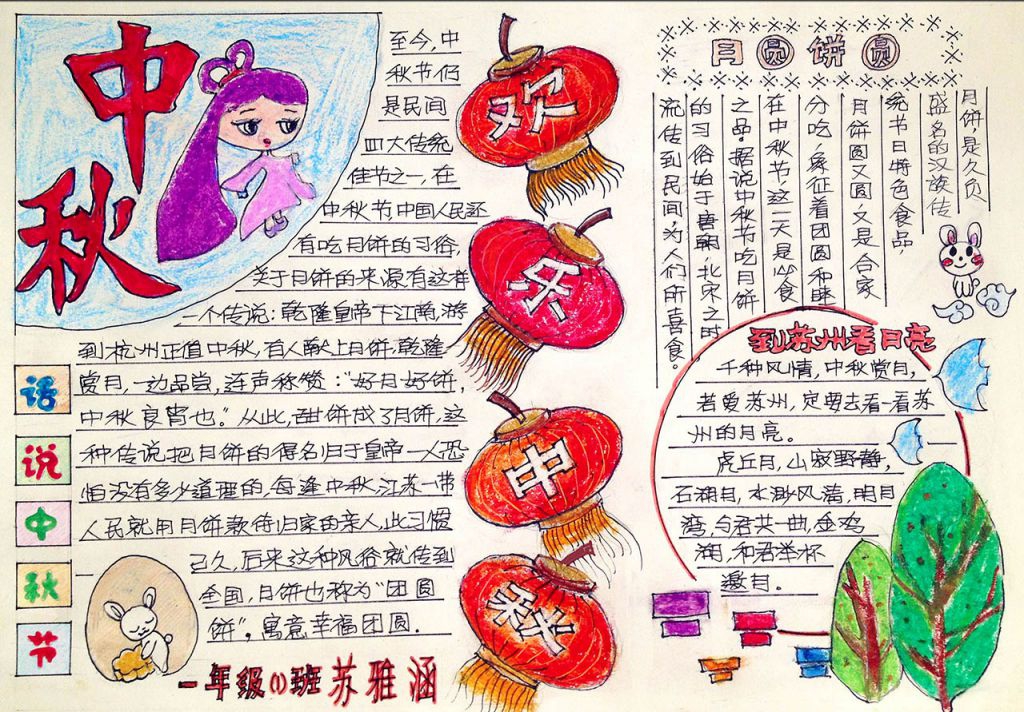 中秋
至今,中
秋节仍
是民间
四大传统
佳节之一,在
中秋节中国人民还
有吃月饼的习俗,
关于月饼的来源有这样
一个传说:乾隆皇帝下江南,游
到杭州正值中秋,有人献上月饼,乾隆
赏月,一边品尝,连声称赞:“好月好饼,
中秋良宵也.”从此,甜饼成了月饼,这
种传说把月饼的得名归于皇帝一人恐
怕没有多少道理的,每逢中秋,江苏一带
人民就用月饼款待归家的亲人,此习惯
已久,后来这种风俗就传到
全国,月饼也称为“团圆
饼”,寓意幸福团圆.
话说中秋节
一年级(1)班苏雅涵
欢乐中秋
月圆饼圆
月饼,是久负
盛名的汉族传
统节日特色食品,
月饼圆又圆,又是合家
分吃,象征着团圆和睦
在中秋节这一天是必食
之品.据说中秋节吃月饼
的习俗始于唐朝,北宋之时
流传到民间,为人们所喜食。
到苏州看月亮
千种风情,中秋赏月,
若爱苏州,定要去看一看苏
州的月亮。
虎丘月,山寂野静,
石湖月,水渺风清,明月
湾,与君共一曲,金鸡
湖,和君举杯
邀月.